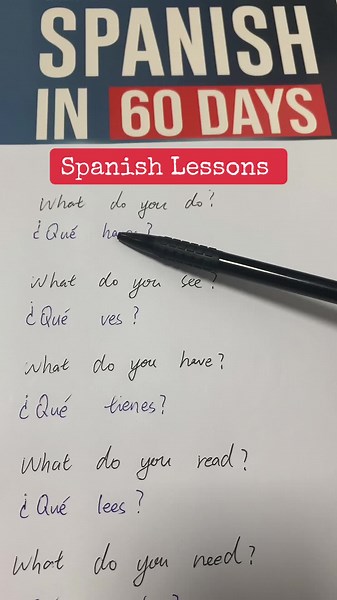 SPANISH
IN 60 DAYS
Spanish Lessons
What do you do?
¿Qué
What do you see?
¿Qué ves?
What do you have?
¿Qué tienes?
What do you read?
¿Qué lees?
What do you need?